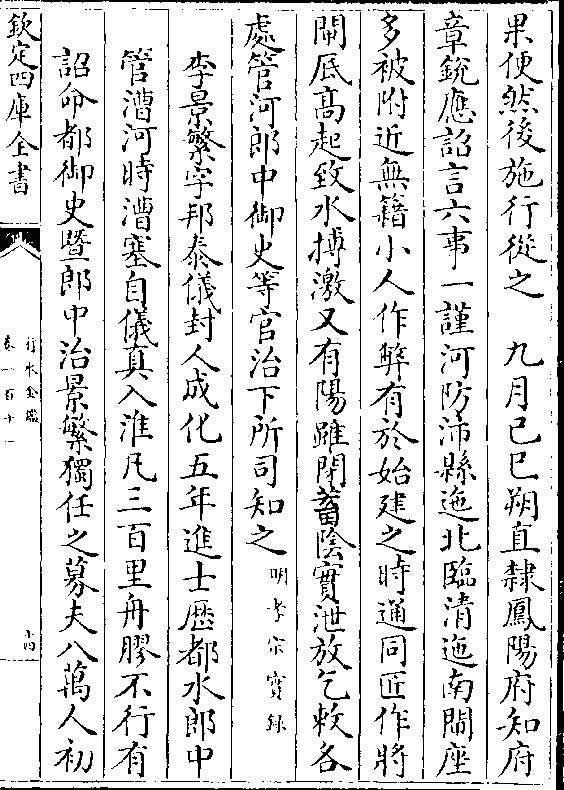 果便然後施行從之　九月己巳朔直隸鳳陽府知府
章銳應詔言六事一謹河防沛縣迤北臨清迤南閘座
多被附近無籍小人作弊有於始建之時通同匠作將
閘底高起致水搏激又有陽雖閉蓄陰實泄放乞敕各
處管河郎中御史等官治下所司知之明孝宗實録
李景繁字邦泰儀封人成化五年進士歷都水郎中
管漕河時漕塞自儀真入淮凡三百里舟膠不行有
詔命都御史暨郎中治景繁獨任之募夫八萬人初
欽定四庫全書
行水金鑑
卷一百十一
十四